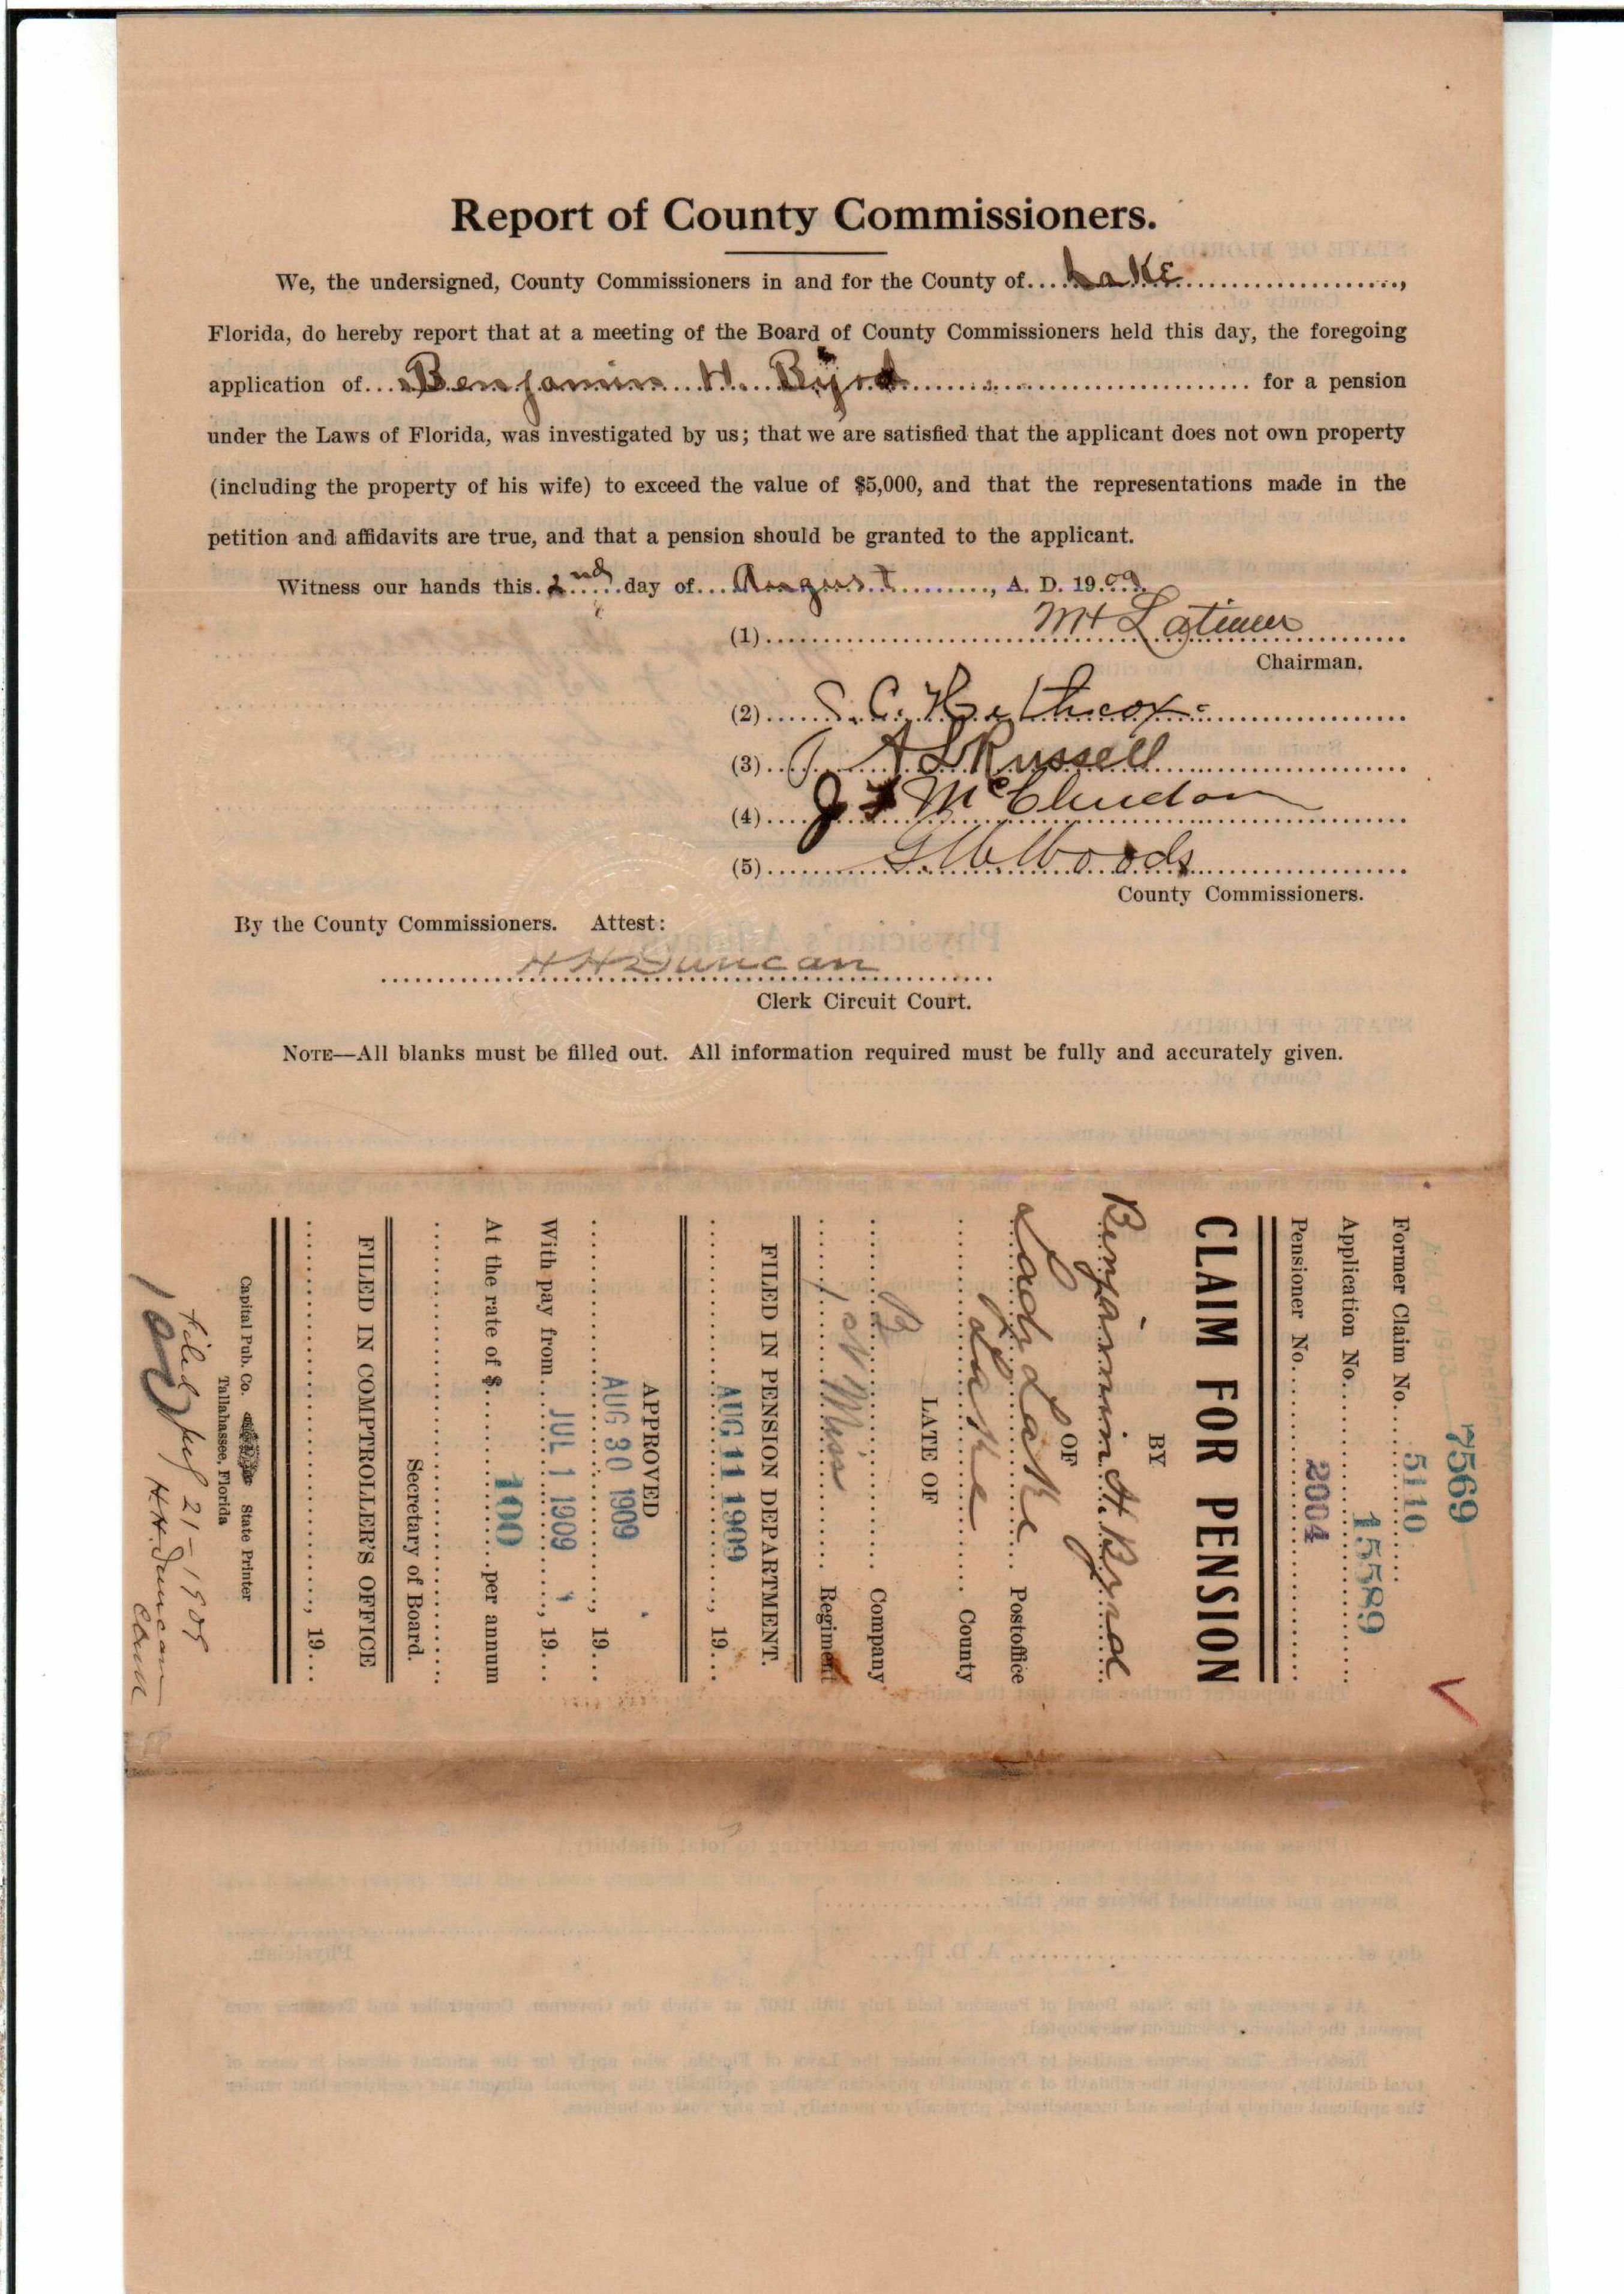 Report of County Commissioners.
We, the undersigned, County Commissioners in and for the County of....Lake....................,
Florida, do hereby report that at a meeting of the Board of County Commissioners held this day, the foregoing
application of....Benjamin H. Byrd.................................. for a pension
under the Laws of Florida, was investigated by us; that we are satisfied that the applicant does not own property
(including the property of his wife) to exceed the value of $5,000, and that the representations made in the
petition and affidavits are true, and that a pension should be granted to the applicant.
Witness our hands this 2nd day of August, A. D. 1909.
(1) M H Latimer
Chairman.
(2) S. C. Hethcox
(3) A L Russell
(4) J F McClendon
(5) G. W Woods
County Commissioners.
By the County Commissioners. Attest:
H H Duncan
Clerk Circuit Court.
NOTE—All blanks must be filled out. All information required must be fully and accurately given.
7569
Former Claim No. 5110
Application No. 15589
Pensioner No. 2004
CLAIM FOR PENSION
BY
Benjamin H. Byrd
OF
Lady Lake Postoffice
Lake County
LATE OF
B Company
1st Miss Regiment
FILED IN PENSION DEPARTMENT.
AUG 11 1909, 19...
APPROVED
AUG 30 1909, 19...
With pay from JUL 1 1909, 19...
At the rate of $ 100 per annum
Secretary of Board.
FILED IN COMPTROLLER'S OFFICE
, 19...
Capital Pub. Co. State Printer
Tallahassee, Florida
Filed July 21-1909
H.H. Duncan
Clerk